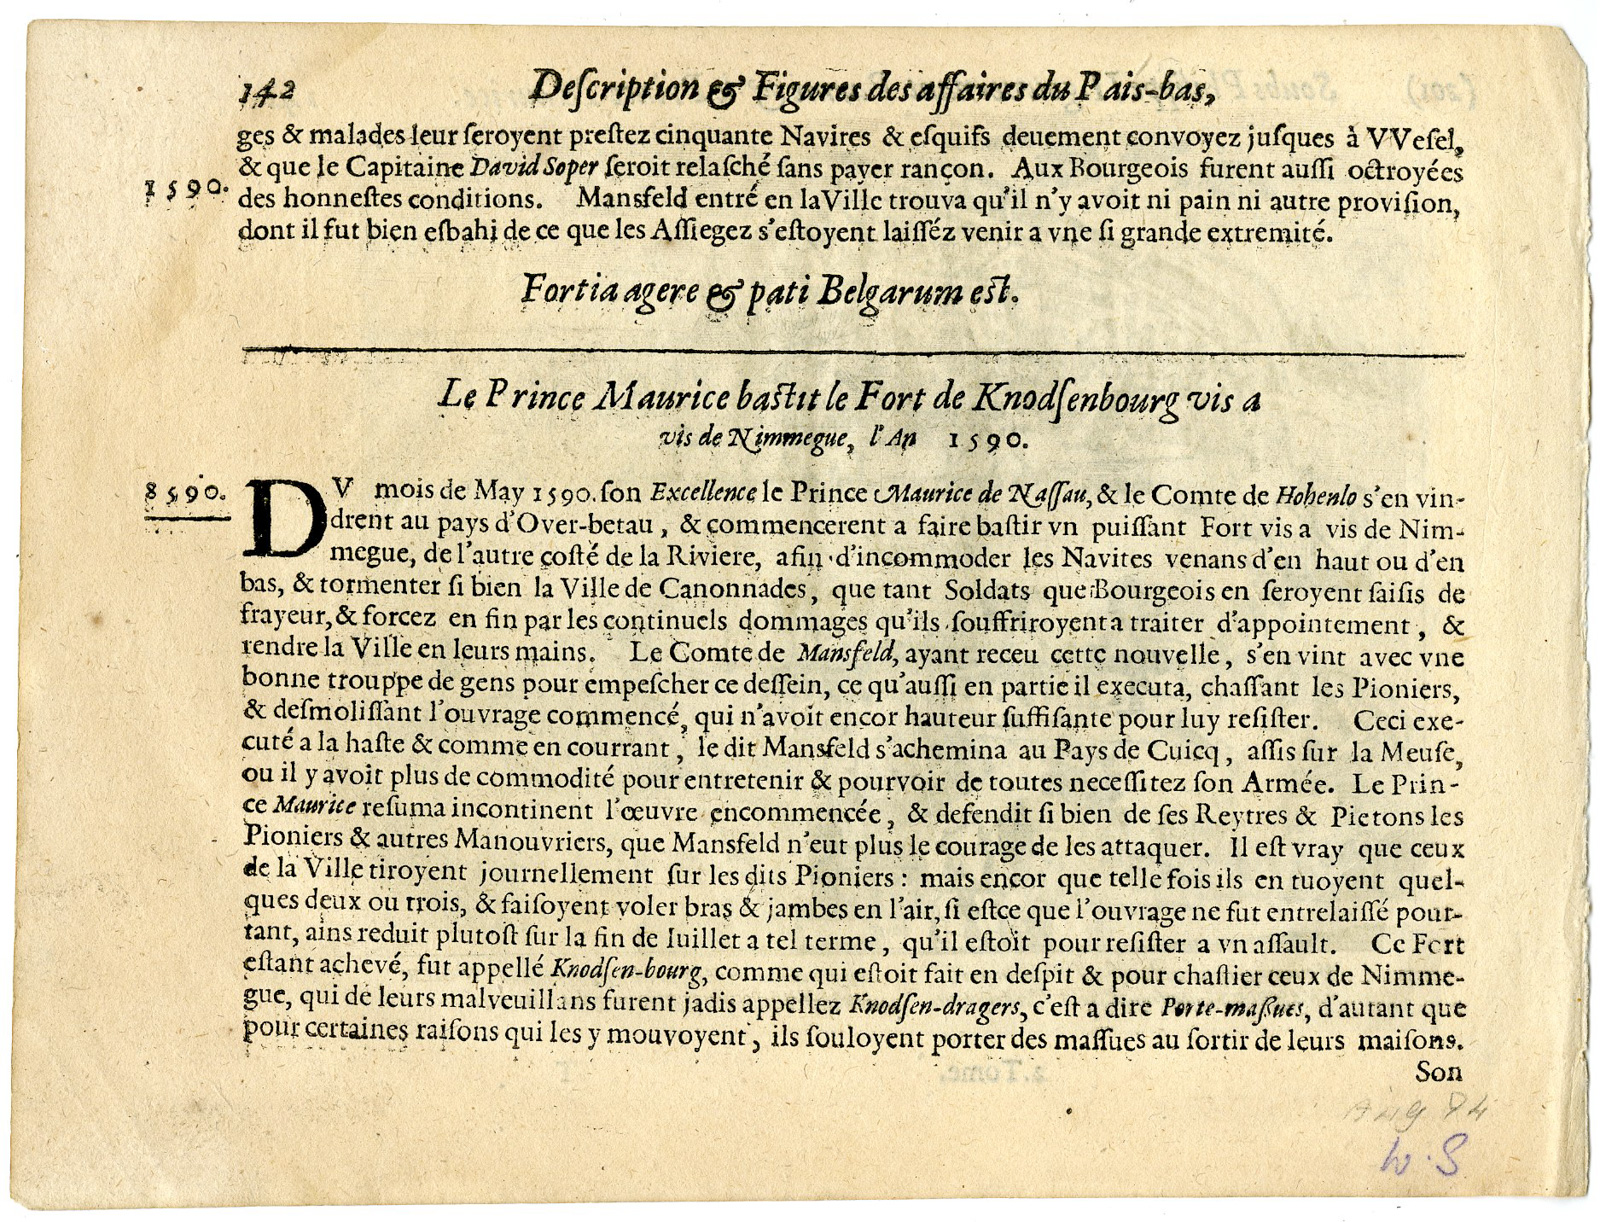 142 Deſcription & Figures des affaires du Pais-bas,
ges & malades leur ſeroyent preſtez cinquante Navires & eſquifs deuement convoyez juſques à VVeſel,
& que le Capitaine David Soper ſeroit relaſché ſans payer rançon. Aux Bourgeois furent auſſi octroyées
1590.
des honneſtes conditions. Mansfeld entré en la Ville trouva qu'il n'y avoit ni pain ni autre proviſion,
dont il fut bien esbahi de ce que les Aſſiegez s'eſtoyent laiſſéz venir a vne ſi grande extremité.
Fortia agere & pati Belgarum eſt.
Le Prince Maurice baſtit le Fort de Knodſenbourg vis a
vis de Nimmegue, l'An 1590.
8590.
DV mois de May 1590. ſon Excellence le Prince Maurice de Naſſau, & le Comte de Hohenlo s'en vin-
drent au pays d'Over-betau, & commencerent a faire baſtir vn puiſſant Fort vis a vis de Nim-
megue, de l'autre coſté de la Riviere, afin d'incommoder les Navites venans d'en haut ou d'en
bas, & tormenter ſi bien la Ville de Canonnades, que tant Soldats que Bourgeois en ſeroyent ſaiſis de
frayeur, & forcez en fin par les continuels dommages qu'ils ſouffriroyent a traiter d'appointement, &
rendre la Ville en leurs mains. Le Comte de Mansfeld, ayant receu cette nouvelle, s'en vint avec vne
bonne trouppe de gens pour empeſcher ce deſſein, ce qu'auſſi en partie il executa, chaſſant les Pioniers,
& deſmoliſſant l'ouvrage commencé, qui n'avoit encor hauteur ſuffiſante pour luy reſiſter. Ceci exe-
cuté a la haſte & comme en courrant, le dit Mansfeld s'achemina au Pays de Cuicq, aſſis ſur la Meuſe,
ou il y avoit plus de commodité pour entretenir & pourvoir de toutes neceſſitez ſon Armée. Le Prin-
ce Maurice reſuma incontinent l'œuvre encommencée, & defendit ſi bien de ſes Reytres & Pietons les
Pioniers & autres Manouvriers, que Mansfeld n'eut plus le courage de les attaquer. Il eſt vray que ceux
de la Ville tiroyent journellement ſur les dits Pioniers : mais encor que telle fois ils en tuoyent quel-
ques deux ou trois, & faiſoyent voler bras & jambes en l'air, ſi eſtce que l'ouvrage ne fut entrelaiſſé pour-
tant, ains reduit plutoſt ſur la fin de Iuillet a tel terme, qu'il eſtoit pour reſiſter a vn aſſault. Ce Fort
eſtant achevé, fut appellé Knodſen-bourg, comme qui eſtoit fait en deſpit & pour chaſtier ceux de Nimme-
gue, qui de leurs malveuillans furent jadis appellez Knodſen-dragers, c'eſt a dire Porte-maſſues, d'autant que
pour certaines raiſons qui les y mouvoyent, ils ſouloyent porter des maſſues au ſortir de leurs maiſons.
Son
W.S